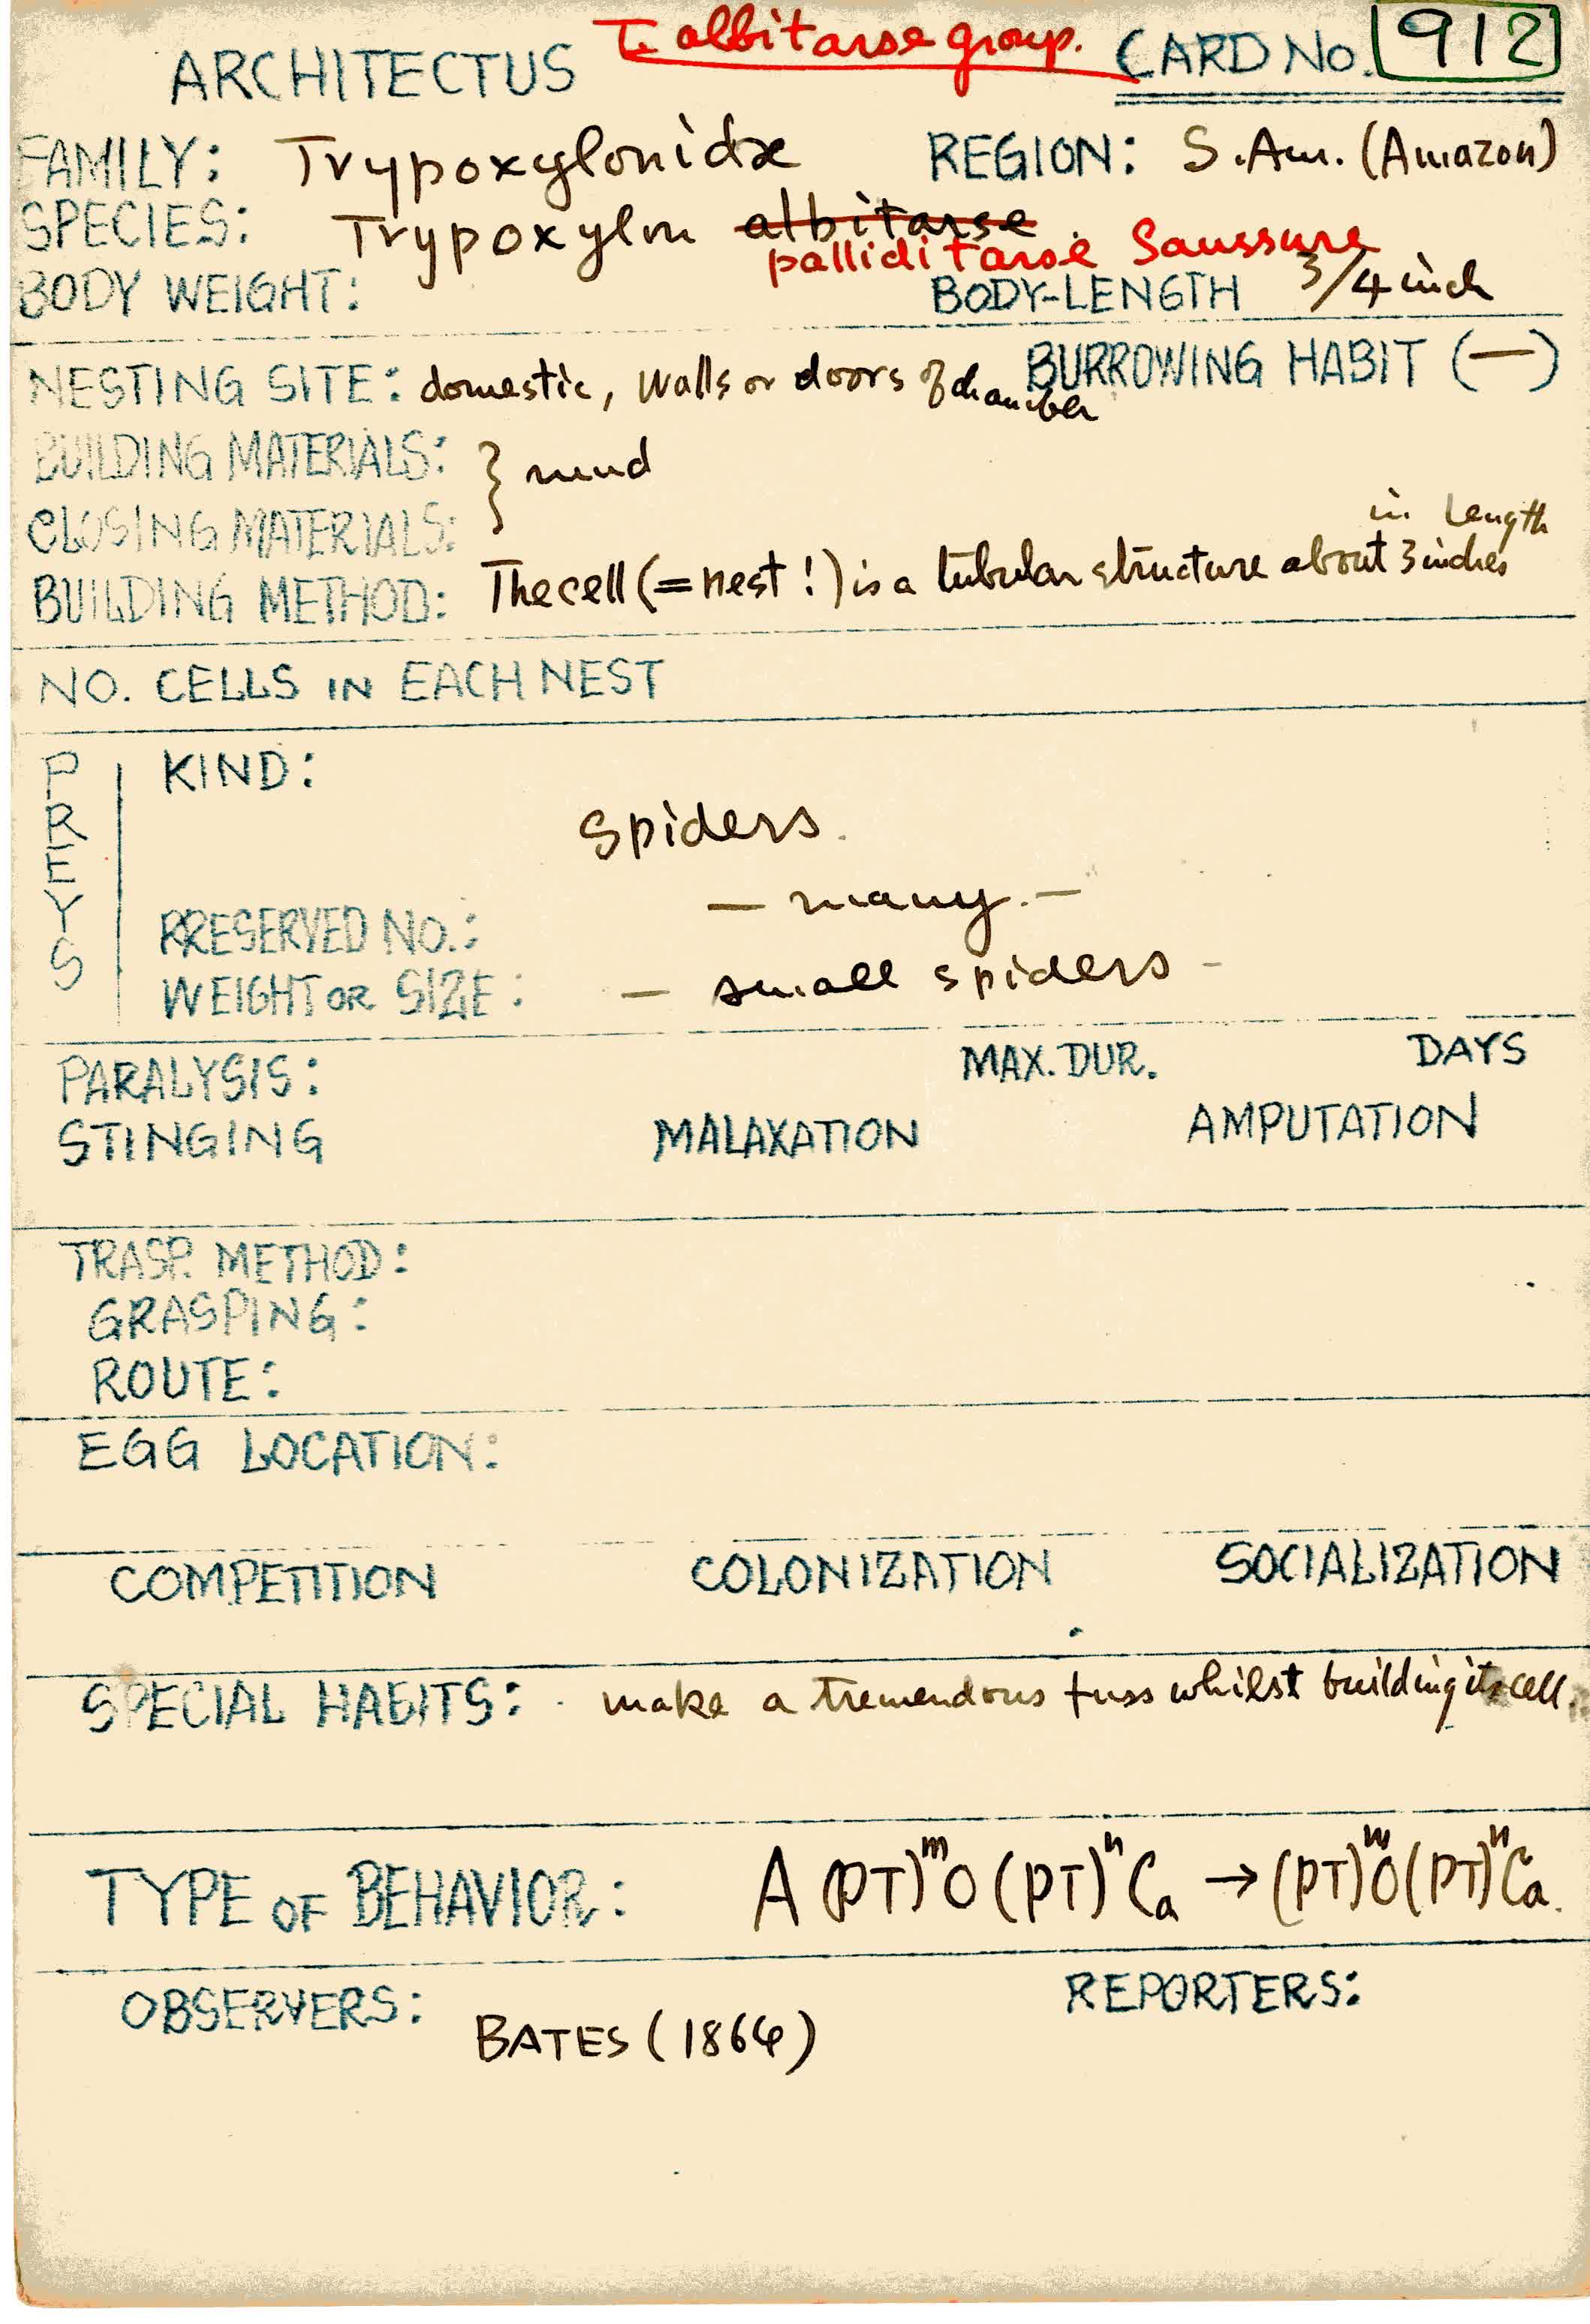 ARCHITECTUS T. albitarse group. CARD NO. 912
FAMILY: Trypoxylonidæ REGION: S. Am. (Amazon)
SPECIES: Trypoxylon albitarse.
pallidi tarse Saussure
BODY WEIGHT: BODY-LENGTH 3/4 inch
NESTING SITE: domestic, walls or doors of chamber BURROWING HABIT (—)
BUILDING MATERIALS: } mud
CLOSING MATERIALS:
in length
BUILDING METHOD: The cell (= nest !) is a tubular structure about 3 inches
NO. CELLS IN EACH NEST
PREYS
KIND:
Spiders.
PRESERVED NO.: — many. —
WEIGHT OR SIZE: — small spiders -
PARALYSIS: MAX. DUR. DAYS
STINGING MALAXATION AMPUTATION
TRASP. METHOD:
GRASPING:
ROUTE:
EGG LOCATION:
COMPETITION COLONIZATION SOCIALIZATION
SPECIAL HABITS: make a tremendous fuss whilst building its cell.
TYPE OF BEHAVIOR: A (PT)ᵐO (PT)ⁿCa → (PT)ᵐO(PT)ⁿCa.
OBSERVERS: BATES (1864) REPORTERS: